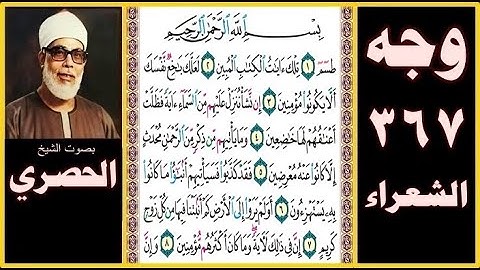 بِسْمِ ٱللَّهِ ٱلرَّحْمَٰنِ ٱلرَّحِيمِ
طسٓمٓ ١ تِلْكَ ءَايَٰتُ ٱلْكِتَٰبِ ٱلْمُبِينِ ٢ لَعَلَّكَ بَٰخِعٌ نَّفْسَكَ
أَلَّا يَكُونُوا۟ مُؤْمِنِينَ ٣ إِن نَّشَأْ نُنَزِّلْ عَلَيْهِم مِّنَ ٱلسَّمَآءِ ءَايَةً فَظَلَّتْ
أَعْنَٰقُهُمْ لَهَا خَٰضِعِينَ ٤ وَمَا يَأْتِيهِم مِّن ذِكْرٍ مِّنَ ٱلرَّحْمَٰنِ مُحْدَثٍ
إِلَّا كَانُوا۟ عَنْهُ مُعْرِضِينَ ٥ فَقَدْ كَذَّبُوا۟ فَسَيَأْتِيهِمْ أَنۢبَٰٓؤُا۟ مَا كَانُوا۟
بِهِۦ يَسْتَهْزِءُونَ ٦ أَوَلَمْ يَرَوْا۟ إِلَى ٱلْأَرْضِ كَمْ أَنۢبَتْنَا فِيهَا مِن كُلِّ زَوْجٍ
كَرِيمٍ ٧ إِنَّ فِى ذَٰلِكَ لَءَايَةً وَمَا كَانَ أَكْثَرُهُم مُّؤْمِنِينَ ٨ وَإِنَّ
وجه
٣٦٧
الشعراء
بصوت الشيخ
الحصري